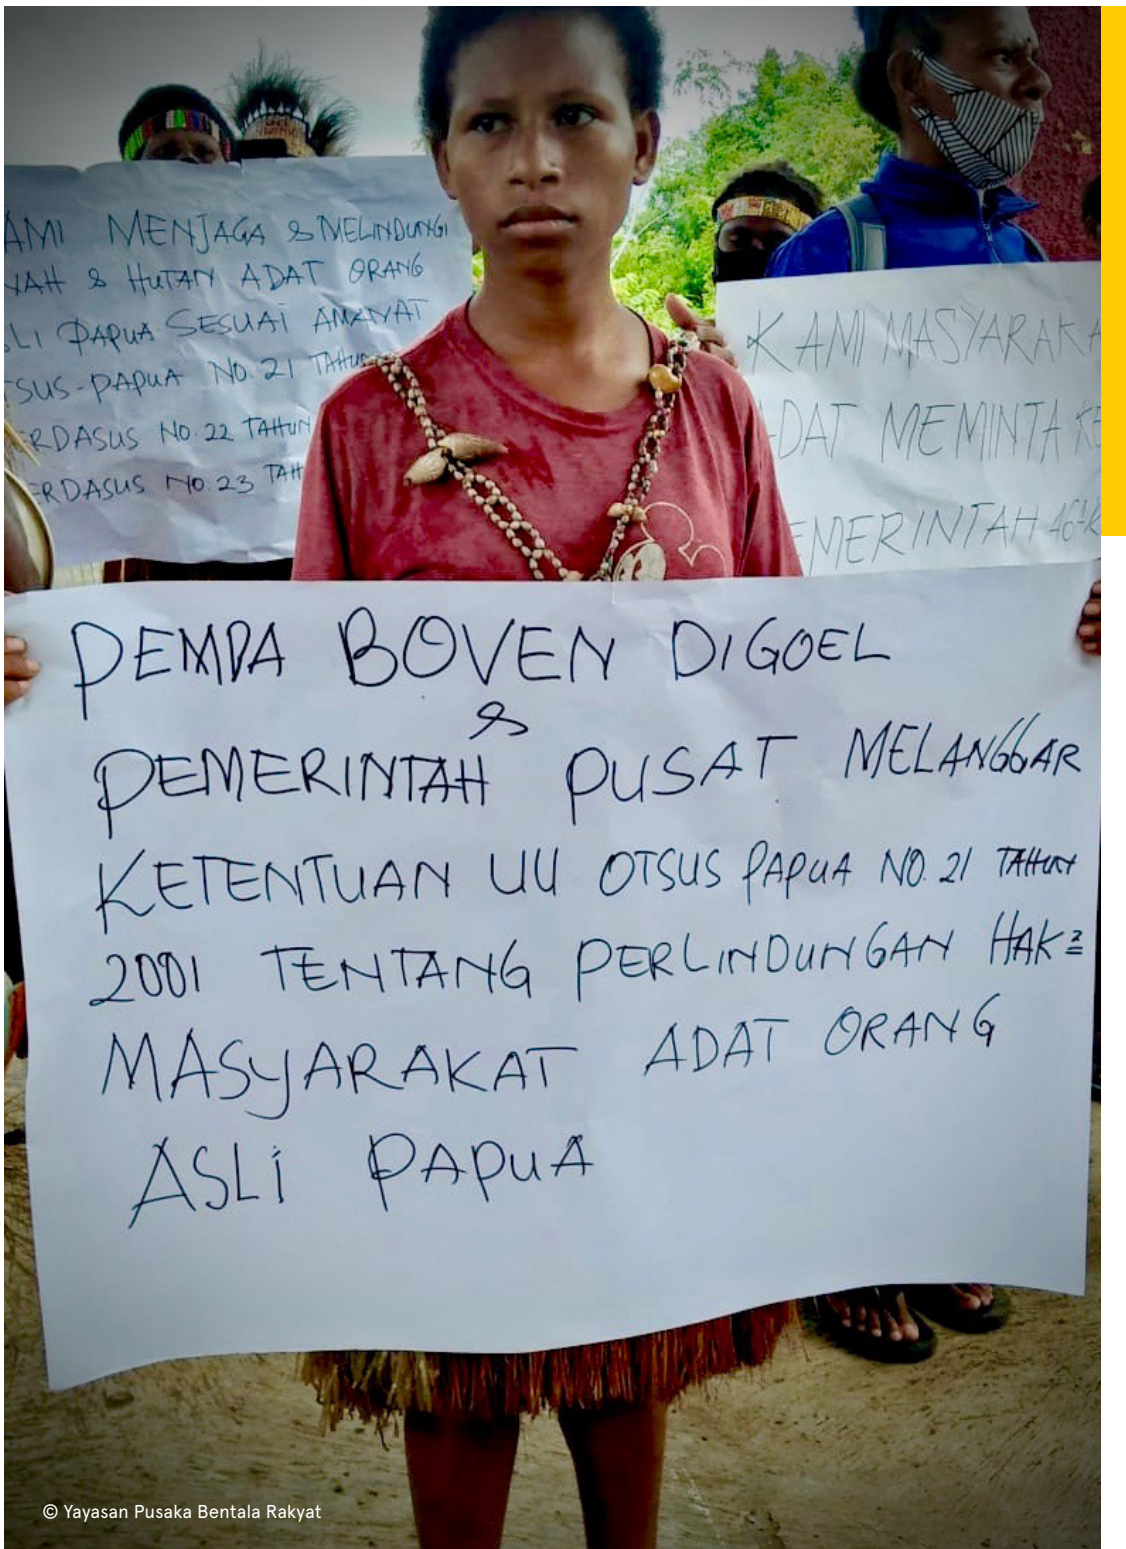 AMI MENJAGA & MELINDUNGI
& HUTAN ADAT ORANG
LI PAPUA SESUAI AMANAT
TSUS-PAPUA NO. 21 TAHUN
RDASUS NO. 22 TAHUN
ERDASUS NO. 23 TAH
KAMI MASYARAKA
ADAT MEMINTA KE
EMERINTAH
PEMDA BOVEN DIGOEL
&
PEMERINTAH PUSAT MELANGGAR
KETENTUAN UU OTSUS PAPUA NO. 21 TAHUN
2001 TENTANG PERLINDUNGAN HAK²
MASYARAKAT ADAT ORANG
ASLI PAPUA
© Yayasan Pusaka Bentala Rakyat